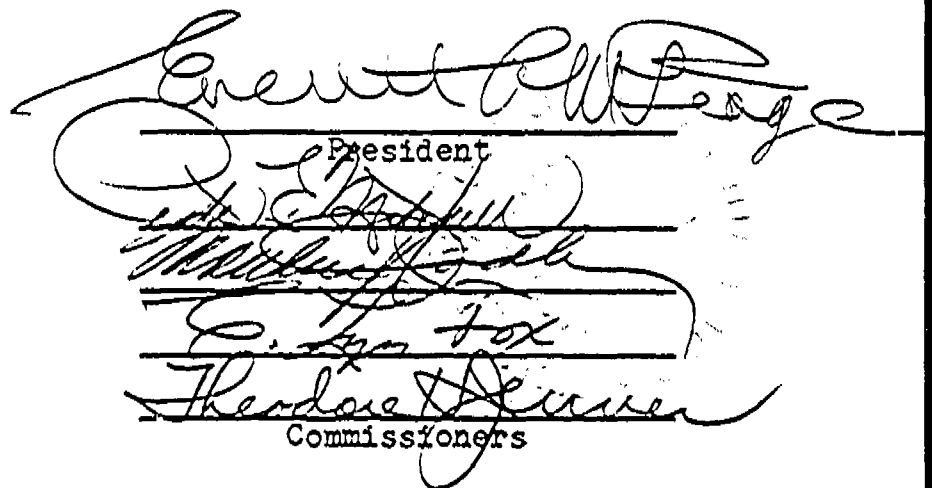 Everett C McKeage
President
Matthew J. Dooley
C. Lyn Fox
Theodore H Jenner
Commissioners